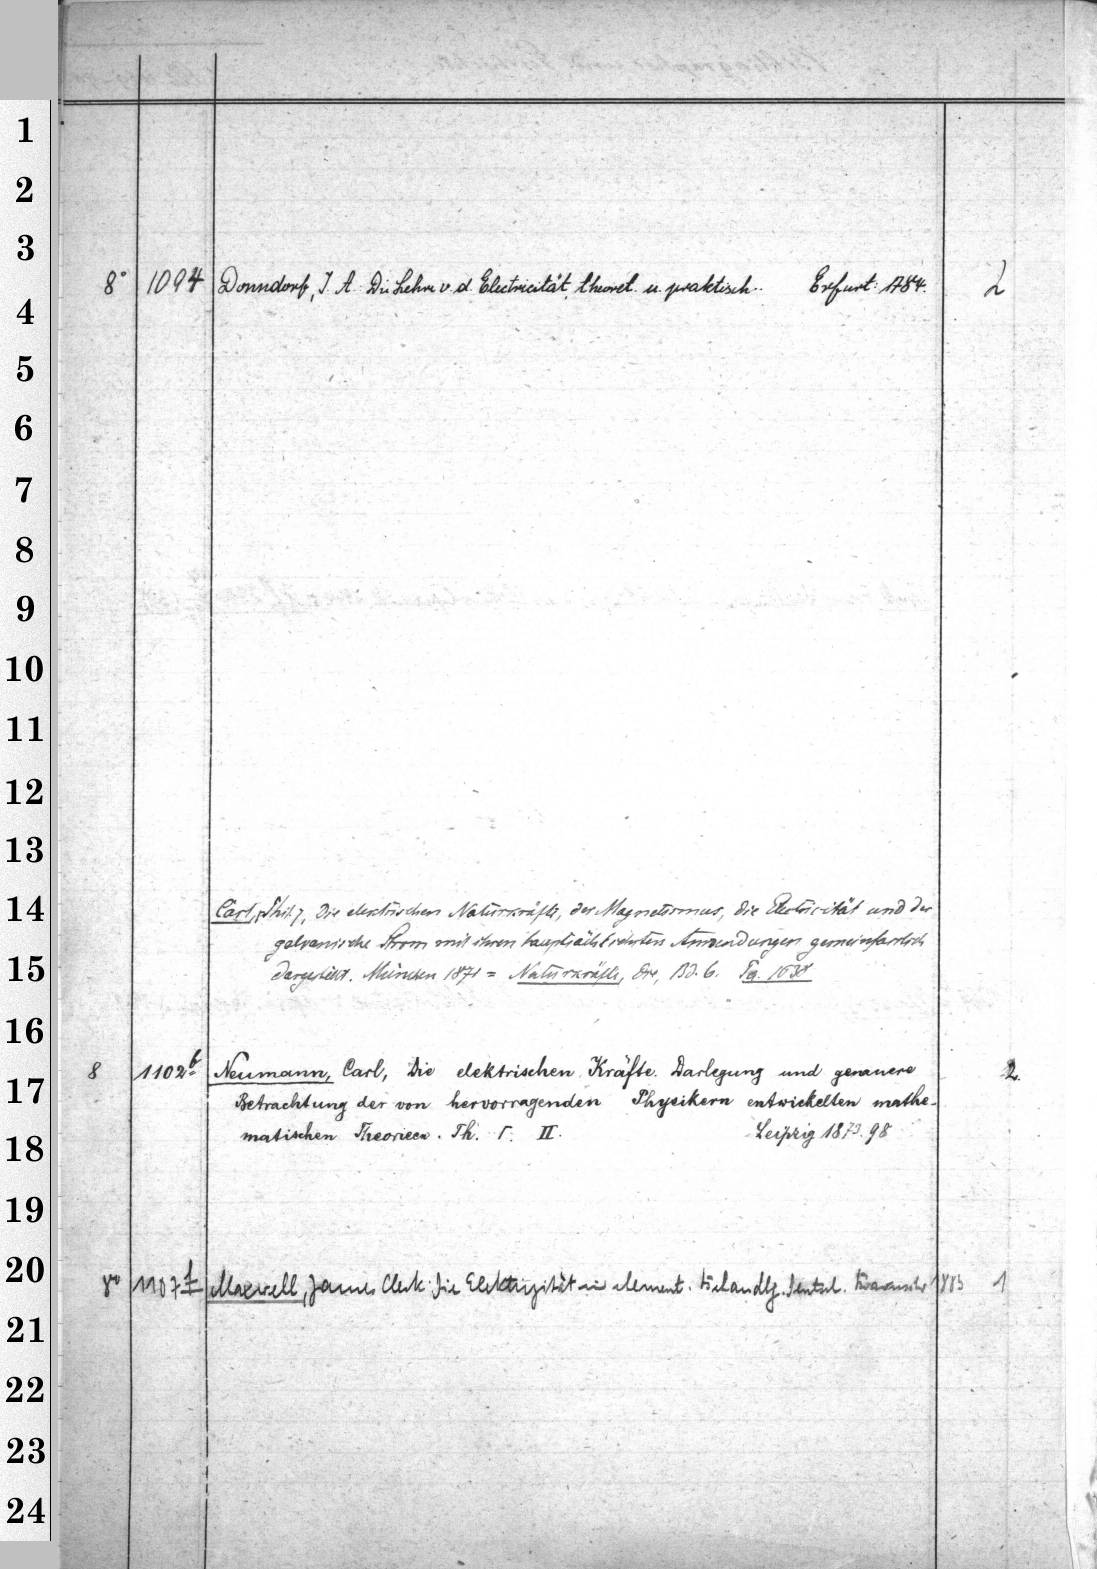 1
2
3
8° 1094 Donndorf, J. A. Die Lehre v. d. Electricität, theoret. u. praktisch.. Erfurt: 1784. 2
4
5
6
7
8
9
10
11
12
13
14 Carl, Phil., Die elektrischen Naturkräfte, der Magnetismus, die Electricität und der
galvanische Strom mit ihren hauptsächlichsten Anwendungen gemeinfasslich
15 dargestellt. München 1871 = Naturkräfte, Die, Bd. 6.
16
8 1102b Neumann, Carl, Die elektrischen Kräfte. Darlegung und genauere 2
17 Betrachtung der von hervorragenden Physikern entwickelten mathe-
matischen Theorieen. Th. I. II. Leipzig 1873. 98
18
19
20
8° 1107f Maxwell, James Clerk Die Elektrizität in element. Behandlg. Deutsch. Braunschw 1883 1
21
22
23
24